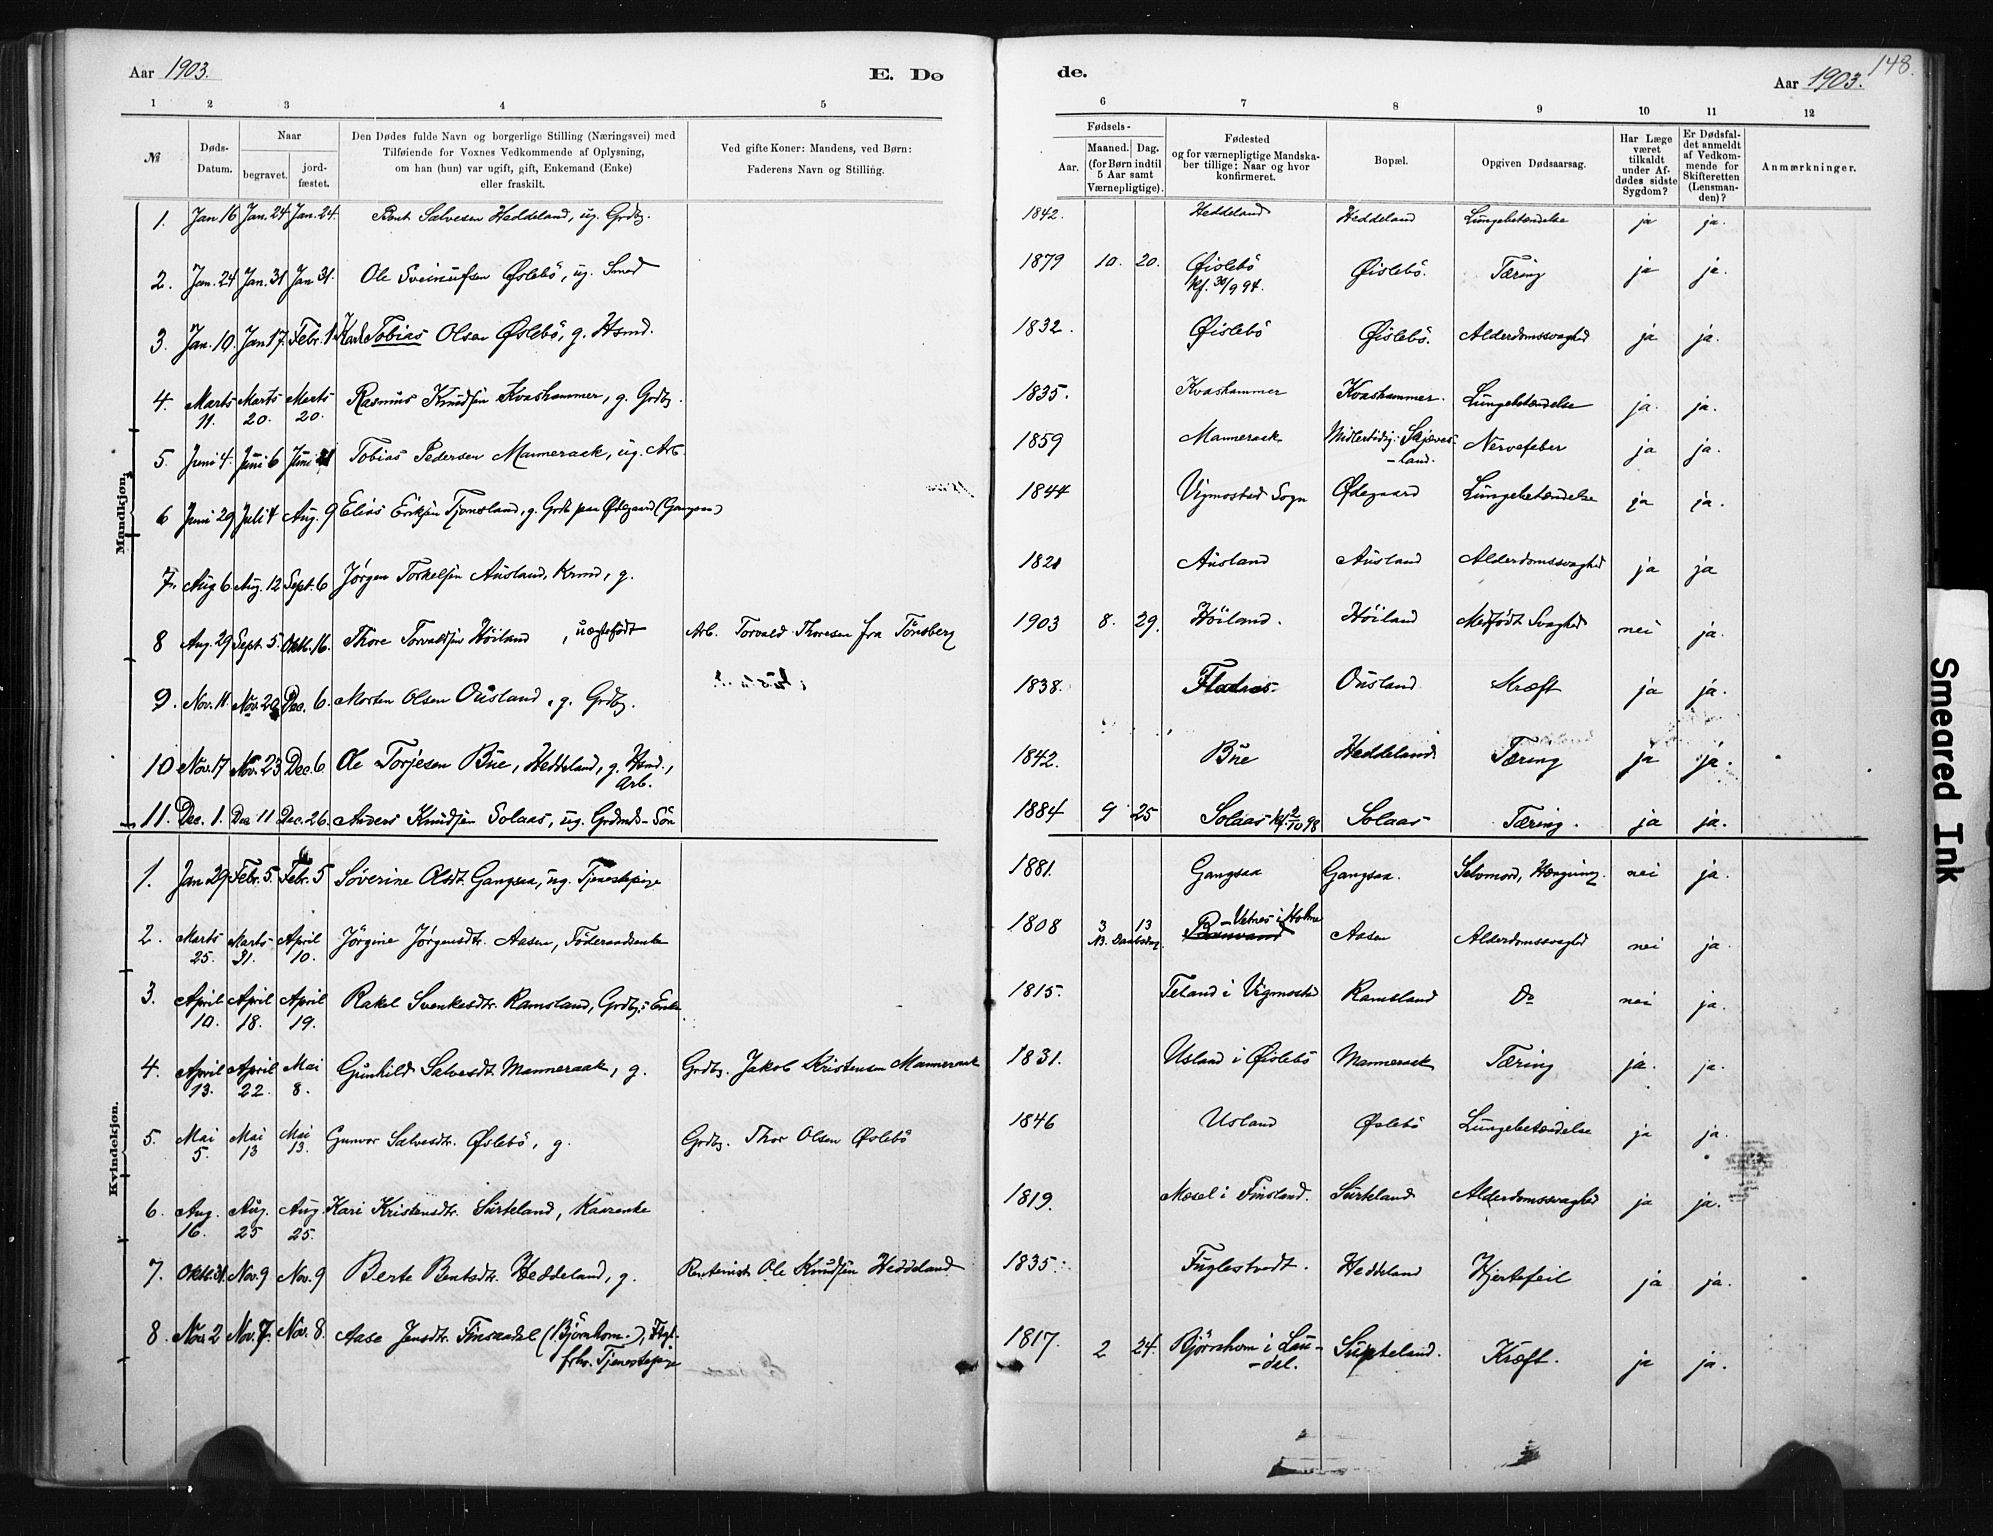 Aar 1903. E. Dø
de. Aar 1903. 148.
1 2 3 4 5 6 7 8 9 10 11 12
№
Døds-Datum.
Naar begravet. jordfæstet.
Den Dødes fulde Navn og borgerlige Stilling (Næringsvei) med
Tilføiende for Voxnes Vedkommende af Oplysning,
om han (hun) var ugift, gift, Enkemand (Enke)
eller fraskilt.
Ved gifte Koner: Mandens, ved Børn:
Faderens Navn og Stilling.
Fødsels-
Aar. Maaned. Dag.
(for Børn indtil
5 Aar samt
Værnepligtige).
Fødested
og for værnepligtige Mandskaber tillige: Naar og hvor
konfirmeret.
Bopæl.
Opgiven Dødsaarsag.
Har Læge
været
tilkaldt
under Afdødes sidste
Sygdom?
Er Dødsfaldet anmeldt
af Vedkommende for
Skifteretten
(Lensmanden)?
Anmærkninger.
Mandkjøn.
1. Jan 16 Jan. 24 Jan. 24. Bent Salvesen Heddeland, ug. Grdbg. 1842. Heddeland Heddeland Lungebetændelse ja ja.
2. Jan. 24 Jan. 31 Jan 31. Ole Sveinulfsen Øslebö, ug. Smed 1879 10. 20. Øislebö kf. 30/9 94. Øislebö. Tæring ja ja.
3. Jan. 10. Jan 17. Febr. 1 Karl Tobias Olsen Øslebö, g. Hsmd. 1832. Øislebö Øislebö. Alderdomssvaghed ja ja.
4. Marts 11. Marts 20. Marts 20. Rasmus Knudsen Kvashammer, g. Grdbg. 1835. Kvashammer Kvashammer. Lungebetændelse ja. ja.
5. Juni 4. Juni 6 Juni 21 Tobias Pedersen Manneraak, ug. Arb. 1859 Manneraak Midlertidig. Skjævesland. Nervefeber ja ja.
6 Juni 29 Juli 4 Aug. 9 Elias Eriksen Tjomsland, g. Grdb. paa Ødegaard (Gangsaa) 1844 Vigmostad Sogn Ødegaard Lungebetændelse ja ja.
7. Aug 6 Aug. 12 Sept. 6 Jørgen Torkelsen Ausland, Krmd, g. 1821 Ausland Ausland Alderdomssvaghed ja ja
8 Aug. 29 Sept. 5. Oktb. 16. Thore Torvaldsen Höiland, uægtefødt Arb. Torvald Thoresen fra Tönsberg 1903 8. 29. Höiland. Höiland Medfødt Svaghed nei ja.
9. Nov. 11. Nov. 20 Dec. 6. Morten Olsen Ousland, g. Grdbg. 1838. Ousland. Kræft ja ja.
10 Nov. 17 Nov. 23 Dec. 6. Ole Torjesen Bue, Heddeland, g. Hsmd., Arb. 1842. Bue Heddeland Tæring ja ja.
11. Dec. 1. Dec 11 Dec. 26. Anders Knudsen Solaas, ug. Grdmds-Sön 1884 9 25 Solaas kf. 2/10 98 Solaas Tæring. ja ja.
Kvindekjøn.
1. Jan 29 Febr. 5. Febr. 5 Søverine Olsdt. Gangsaa, ug. Tjenestepige 1881. Gangsaa Gangsaa. Selvmord, Hængning. nei ja.
2. Marts 25. Marts 31. April 10. Jörgine Jørgensdtr. Aasen, Föderaadsenke 1808 3 13 N3. Daabsdag Vetnes i Holme Aasen Alderdomssvaghed nei ja
3. April 10. April 18. April 19. Rakel Svenkesdtr. Ramsland, Grdbg.s Enke 1815. Teland i Vigmostad Ramsland Do nei ja.
4. April 13. April 22. Mai 8. Gunhild Salvesdt. Manneraak, g. Grdbg. Jakob Kristensen Manneraak 1831. Usland i Øislebö Manneraak Tæring ja. ja.
5. Mai 5. Mai 13 Mai 13. Gunvor Salvesdtr. Øslebö, g. Grdbg. Thor Olsen Øslebö 1846 Usland Øslebö Lungebetændelse ja ja.
6. Aug. 16. Aug. 25 Aug. 25. Kari Kristensdtr. Surteland, Kaarenke 1819. Mosel i Finsland. Surteland Alderdomssvaghed ja ja.
7. Oktb. 31. Nov. 9 Nov. 9 Berte Bentsdtr. Heddeland, g. Rentenist Ole Knudsen Heddeland 1835. Fuglestvedt. Heddeland Hjertefeil ja ja.
8. Nov. 2 Nov. 7. Nov. 8. Aase Jensdtr. Finsaadal (Björnhom.), Ftgl. frhv. Tjenestepige 1817. 2 24. Bjørnhom i Laudal. Surteland. Kræft. ja ja.
Smeared Ink